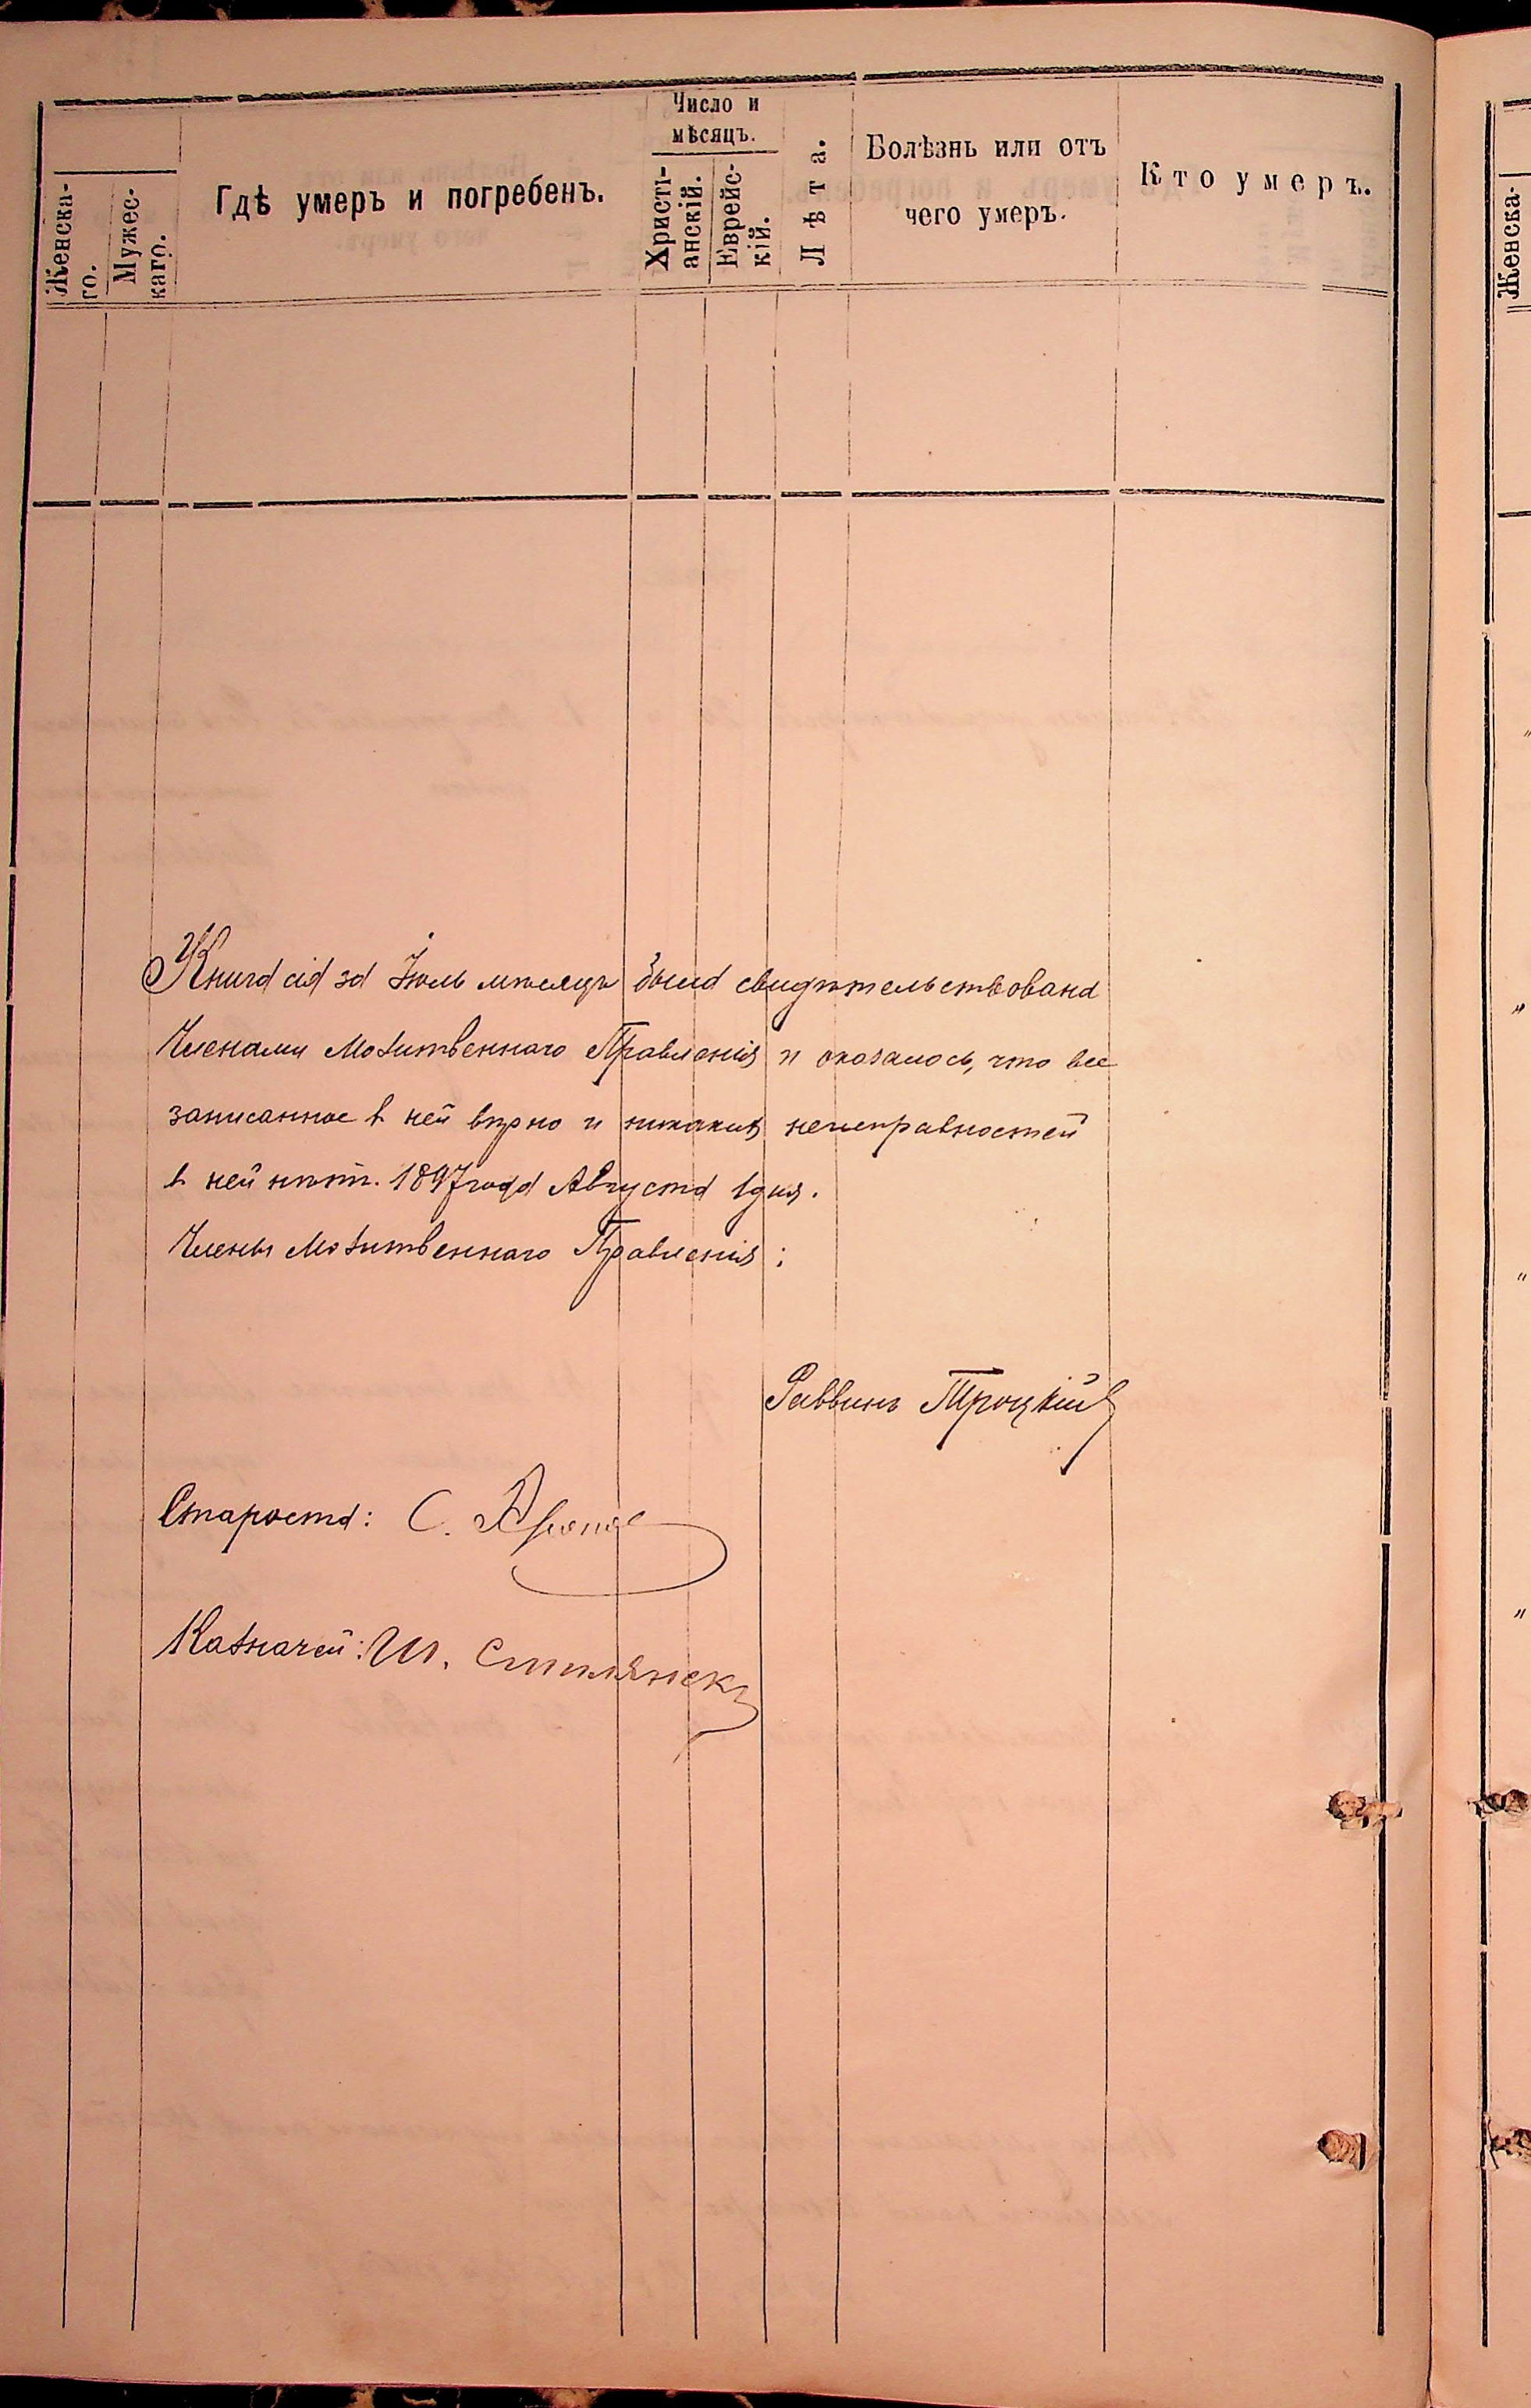 Женска-
го.
Мужес-
каго.
Гдѣ умеръ и погребенъ.
Число и
мѣсяцъ.
Христі-
анскій.
Еврейс-
кій.
Лѣта.
Болѣзнь или отъ
чего умеръ.
Кто умеръ.
Книга сія за Іюль мѣсяцъ была свидѣтельствована
Членами Молитвеннаго Правленія и оказалось, что все
записанное в ней вѣрно и никакихъ неисправностей
в ней нѣтъ. 1897 года Августа 1 дня.
Члены Молитвеннаго Правленія:
Раввинъ Троцкій
Староста: С.
Казначей: Ш.
Женска-